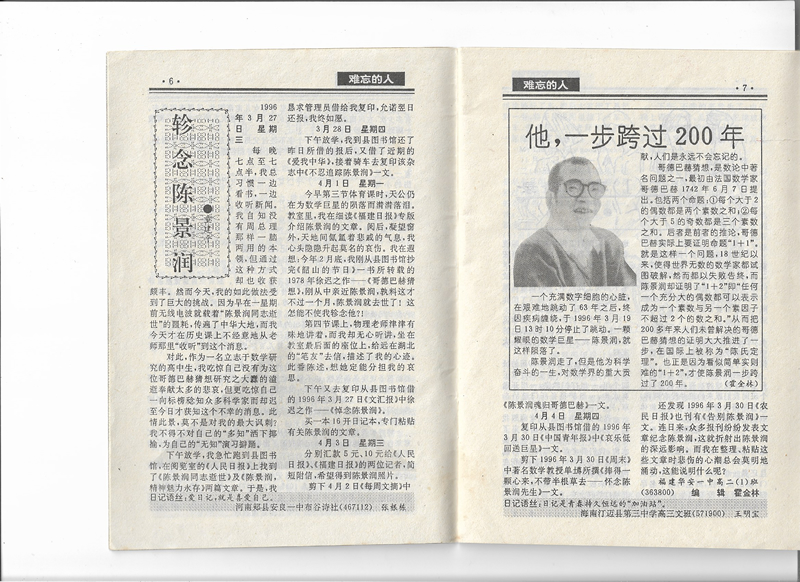 ·6·
难忘的人
轸念陈景润
1996
年3月27
日 星期
三
每晚
七点至七
点半,我总
习惯一边
看书,一边
收听新闻。
我自知没
有周总理
那样一脑
两用的本
领,但通过
这种方式
却也收获
颇丰。然而今天,我的如此做法受
到了巨大的挑战。因为早在一星期
前无线电波就载着“陈景润同志逝
世”的噩耗,传遍了中华大地,而我
今天才在历史课上不经意地从老
师那里“收听”到这个消息。
对此,作为一名立志于数学研
究的高中生,我吃惊自己没有为这
位哥德巴赫猜想研究之大纛的遽
逝奉献太多的悲哀,但更吃惊自己
一向标榜础知众多科学家而却迟
至今日才获知这个不幸的消息。此
情此景,莫不是对我的最大讽刺?
我不得不对自己的“多知”洒下揶
揄,为自己的“无知”演习辩题。
下午放学,我急忙跑到县图书
馆,在阅览室的《人民日报》上找到
了《陈景润同志逝世》及《陈景润,
精神魅力永存》两篇文章。于是,我
恳求管理员借给我复印,允诺翌日
还报,我终如愿。
3月28日 星期四
下午放学,我到县图书馆还了
昨日所借的报后,又借了近期的
《爱我中华》,接着骑车去复印该杂
志中《不忍追踪陈景润》一文。
4月1日 星期一
今早第三节体育课时,天公仍
在为数学巨星的陨落而潸潸落泪。
教室里,我在细读《福建日报》专版
介绍陈景润的文章。阅后,凝望窗
外,天地间氤氲着悲戚的气息,我
心头隐隐升起莫名的哀伤。我在遐
想:今年2月底,我刚从县图书馆抄
完《韶山的节日》一书所转载的
1978年徐迟之作——《哥德巴赫猜
想》,刚从中亲近陈景润,孰料这才
不过一个月,陈景润就去世了!这
怎能不使我轸念他?!
第四节课上,物理老师津津有
味地讲着,而我却无心听讲,坐在
教室最后面的座位上,给远在湖北
的“笔友”去信,描述了我的心迹。
此番陈述,想她定能分担我的哀
思。
下午又去复印从县图书馆借
的1996年3月27日《文汇报》中徐
迟之作——《悼念陈景润》。
买一本16开日记本,专门粘贴
有关陈景润的文章。
4月3日 星期三
分别汇款5元、10元给《人民
日报》、《福建日报》的两位记者,简
短附信,希望得到陈景润照片。
剪下4月2日《每周文摘》中
日记语丝:爱日记,就是喜爱自己。
河南郏县安良一中布谷诗社(467112) 张根栋
难忘的人
·7·
他,一步跨过200年
一个充满数字细胞的心脏,
在艰难地跳动了63年之后,终
因疾病缠绕,于1996年3月19
日13时10分停止了跳动。一颗
耀眼的数学巨星——陈景润,就
这样陨落了。
陈景润走了,但是他为科学
奋斗的一生,对数学界的重大贡
献,人们是永远不会忘记的。
哥德巴赫猜想,是数论中著
名问题之一,最初由法国数学家
哥德巴赫1742年6月7日提
出,包括两个命题,①每个大于2
的偶数都是两个素数之和;②每
个大于5的奇数都是三个素数
之和。后者是前者的推论,哥德
巴赫实际上要证明命题“1+1”。
就是这样一个问题,18世纪以
来,使得世界无数的数学家都试
图破解,然而都以失败告终,而
陈景润却证明了“1+2”即“任何
一个充分大的偶数都可以表示
成为一个素数与另一个素因子
不超过2个的数之和。”从而把
200多年来人们未曾解决的哥德
巴赫猜想的证明大大推进了一
步,在国际上被称为“陈氏定
理”。也正是因为看似简单实则
难的“1+2”,才使陈景润一步跨
过了200年。 (霍金林)
《陈景润魂归哥德巴赫》一文。
4月4日 星期四
复印从县图书馆借的1996年
3月30日《中国青年报》中《哀乐低
回送巨星》一文。
剪下1996年3月30日《周末》
中著名数学教授单墫所撰《捧得一
颗心来,不带半根草去——怀念陈
景润先生》一文。
还发现1996年3月30日《农
民日报》也刊有《告别陈景润》一
文。连日来,众多报刊纷纷发表文
章纪念陈景润,这就折射出陈景润
的深远影响。而我在整理、粘贴这
些文章时悲伤的心潮总会莫明地
涌动,这能说明什么呢?
福建华安一中高二(1)班
(363800) 编辑 霍金林
日记语丝:日记是青春持久恒远的“加油站”。
海南汀迈县第三中学高三文班(571900) 王明宝